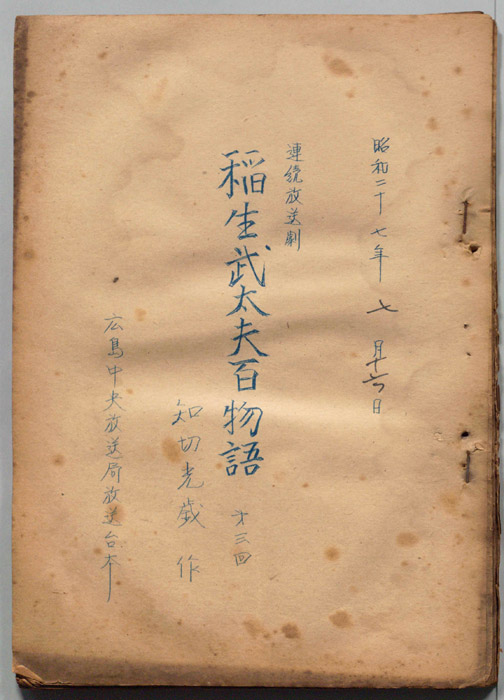 昭和二十七年 七月十六日
連続放送劇
稲生武太夫百物語 才三回
知切光歳 作
広島中央放送局放送台本